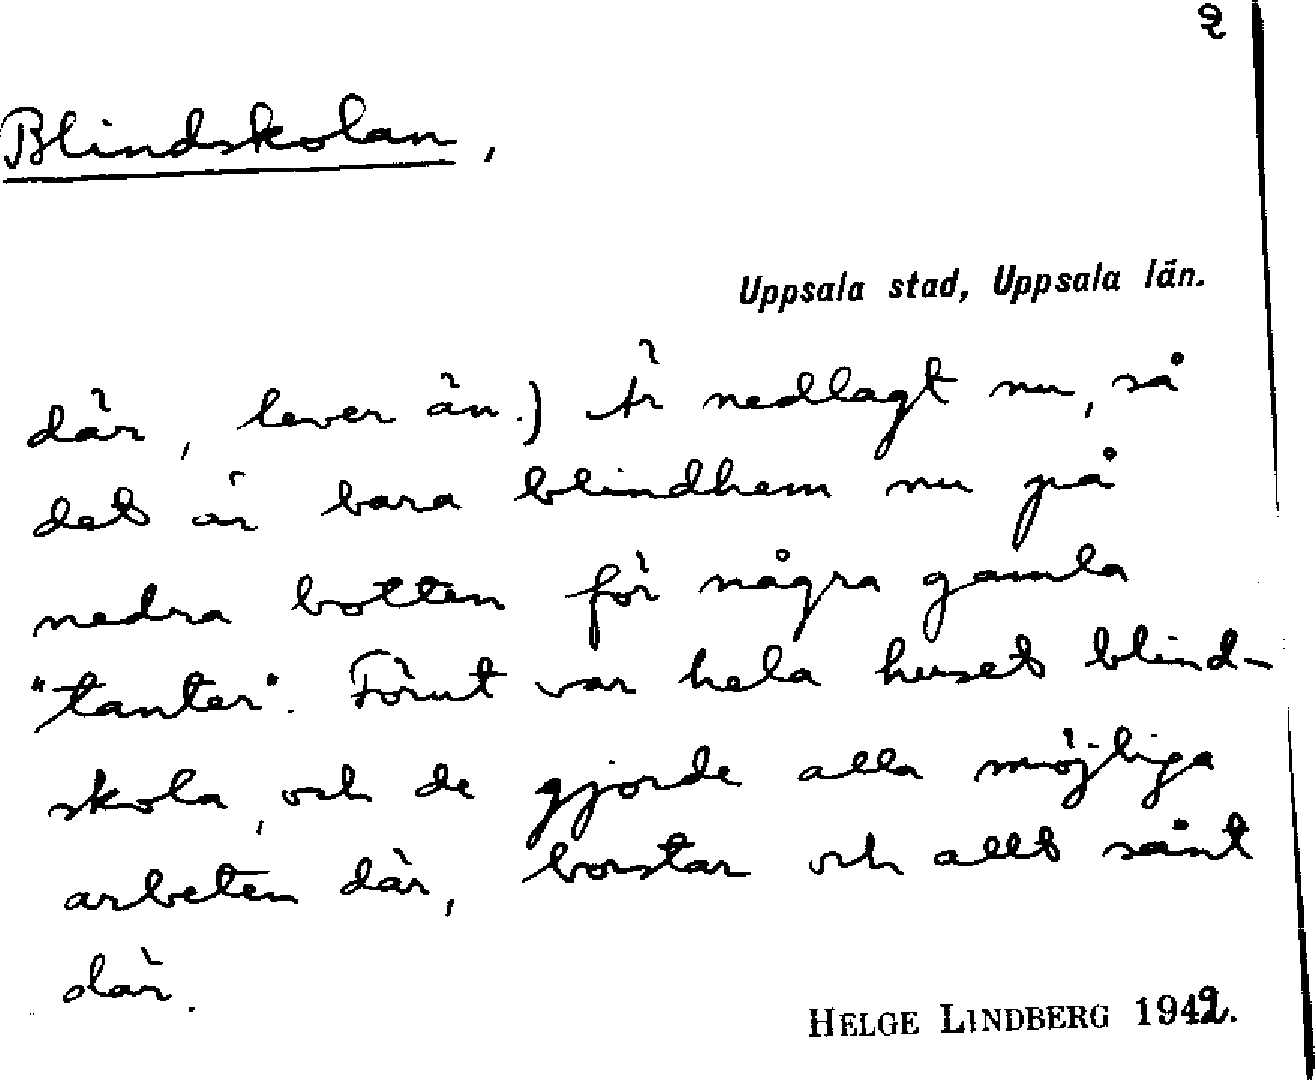 2
Blindskolan,
Uppsala stad, Uppsala län.
där, lever än.) Är nedlagt nu, så
det är bara blindhem nu på
nedra botten för några gamla
"tanter". Förut var hela huset blind-
skola, och de gjorde alla möjliga
arbeten där, borstar och allt sånt
där.
HELGE LINDBERG 1942.